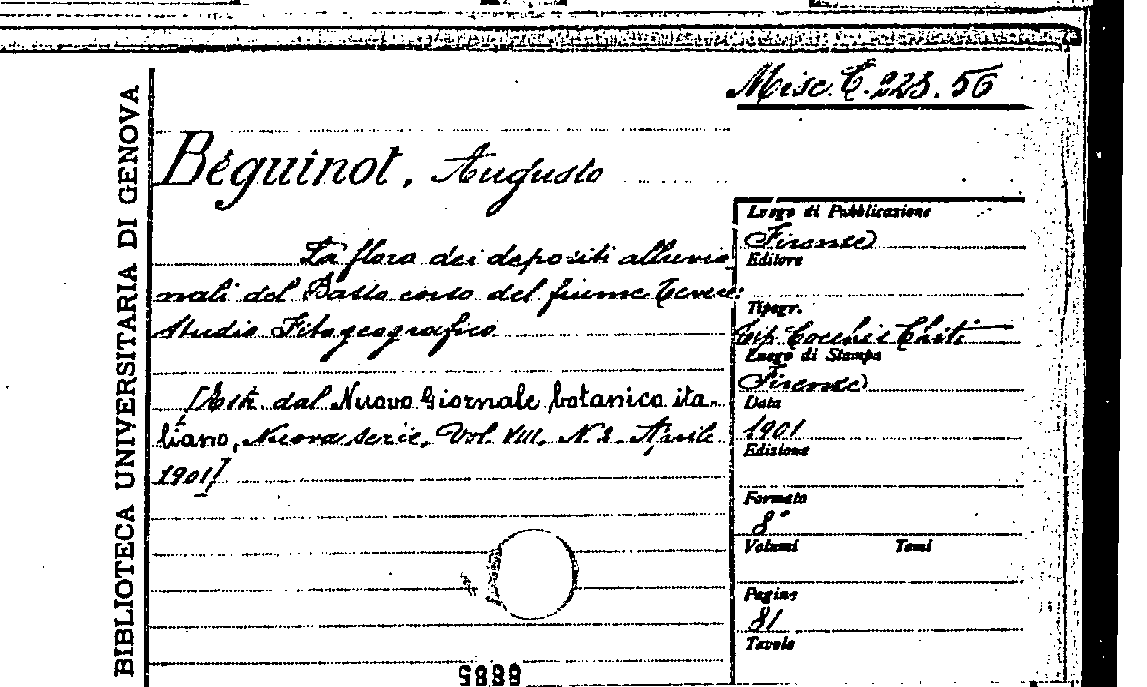 Misc. C. 223. 56
BIBLIOTECA UNIVERSITARIA DI GENOVA
Béguinot, Augusto
La flora dei depositi alluvio
nali del Basso corso del fiume Tevere:
Studio Fitogeografico
[Estr. dal Nuovo Giornale botanico ita-
liano, Nuova serie, Vol. VIII, N. 2. Aprile
1901]
Luogo di Pubblicazione
Firenze
Editore
Tipogr.
Tip. Cocchi e Chiti
Luogo di Stampa
Firenze
Data
1901
Edizione
Formato
8°
Volumi Tomi
Pagine
81
Tavole